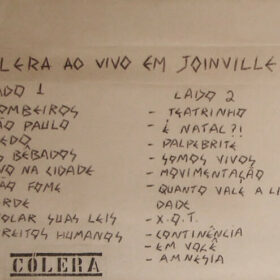 LERA AO VIVO EM JOINVILLE
ADO 1
OMBEIROS
ÃO PAULO
EDO
S BÊBADOS
VO NA CIDADE
ÃO FOME
ERDE
OLAR SUAS LEIS
REITOS HUMANOS
CÓLERA
LADO 2
- TEATRINHO
- É NATAL?!
- PALPEBRITE
- SOMOS VIVOS
- MOVIMENTAÇÃO
- QUANTO VALE A LI
DADE
- X.O.T.
- CONTINÊNCIA
- EM VOCÊ
- AMNESIA